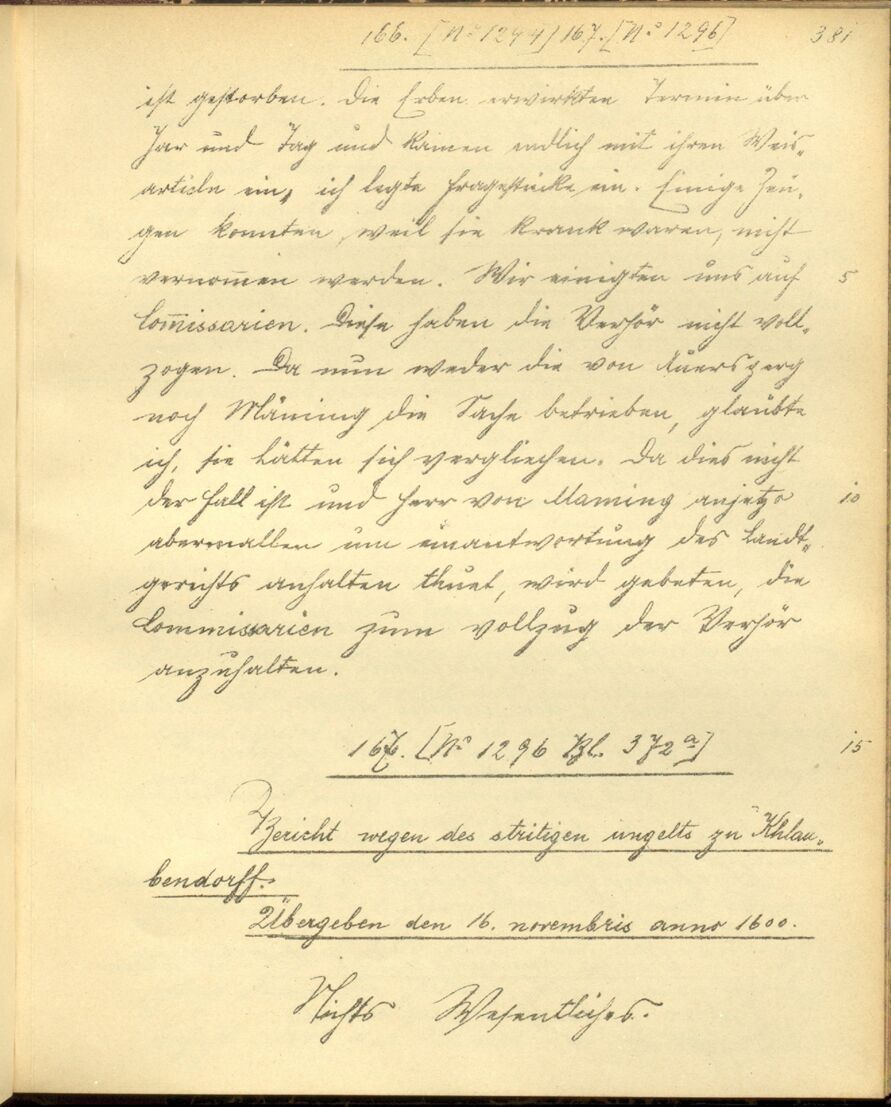 166. [No 1294] 167. [No 1296] 381
ist gestorben. Die Erben erwirkten Termin über
Jar und Tag und kamen endlich mit ihren Weis-
articln ein, ich legte Fragestücke ein. Einige Zeu-
gen konnten, weil sie krank waren, nicht
vernom̄en werden. Wir einigten uns auf 5
Com̄issarien. Diese haben die Verhör nicht voll-
zogen. Da nun weder die von Auersperg
noch Mäming die Sache betrieben, glaubte
ich, sie hätten sich verglichen. Da dies nicht
der Fall ist und Herr von Maming anjetzo 10
abermallen um einantwortung des Landt-
gerichts anhalten thuet, wird gebeten, die
Commissarien zum vollzug der Verhör
anzuhalten.
167. [No 1296 Bl. 372a] 15
Bericht wegen des stritigen ungelts zu Khlau-
bendorff.
Übergeben den 16. novembris anno 1600.
Nichts Wesentliches.